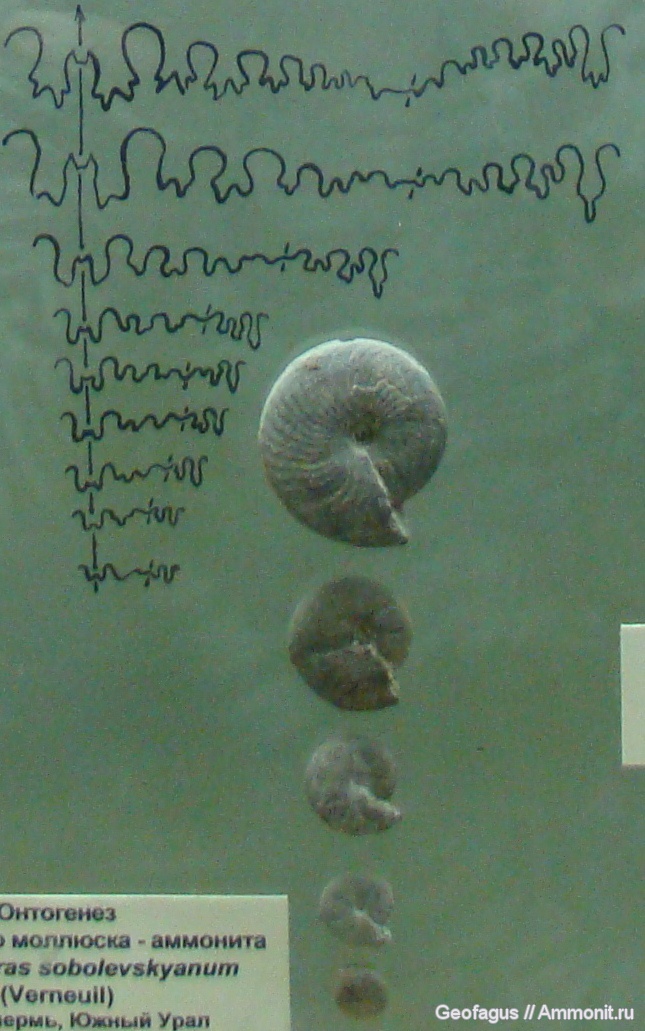 Онтогенез
моллюска - аммонита
ras sobolevskyanum
(Verneuil)
ермь, Южный Урал
Geofagus // Ammonit.ru